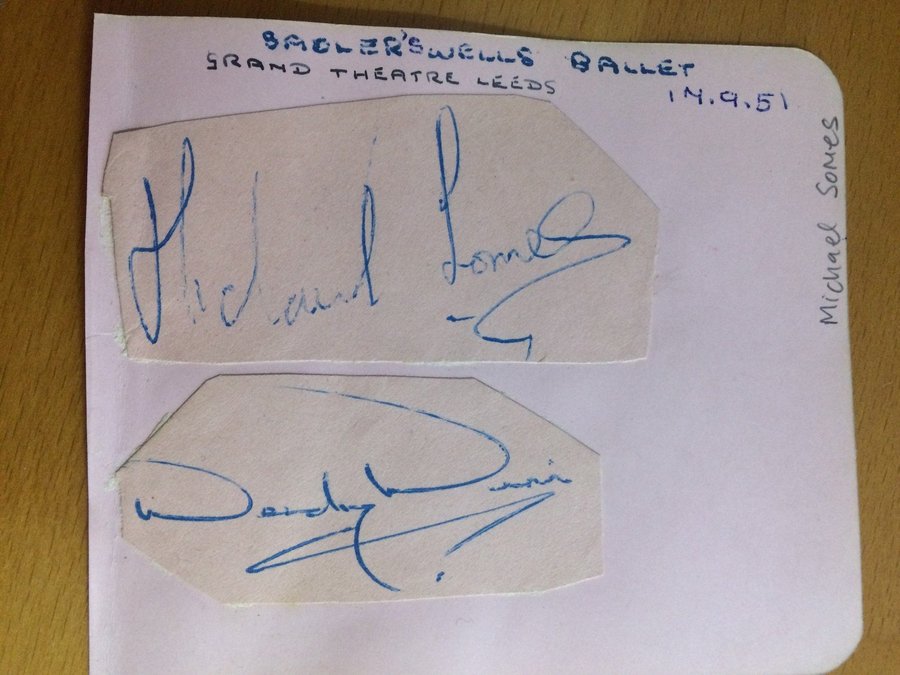 SADLER'S WELLS BALLET
GRAND THEATRE LEEDS
17.9.51
Michael Somes
Michael Somes
Wendy